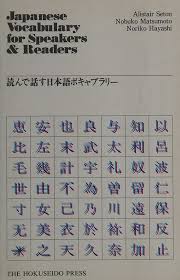 Japanese
Vocabulary
for Speakers
& Readers
Alistair Seton
Nobuko Matsumoto
Noriko Hayashi
読んで話す日本語ボキャブラリー
恵安也良与知以
比左末武太利呂
毛幾計宇礼奴波
世由不為曽留仁
寸女己乃川遠保
无美衣於祢和反
之天久奈加止
THE HOKUSEIDO PRESS